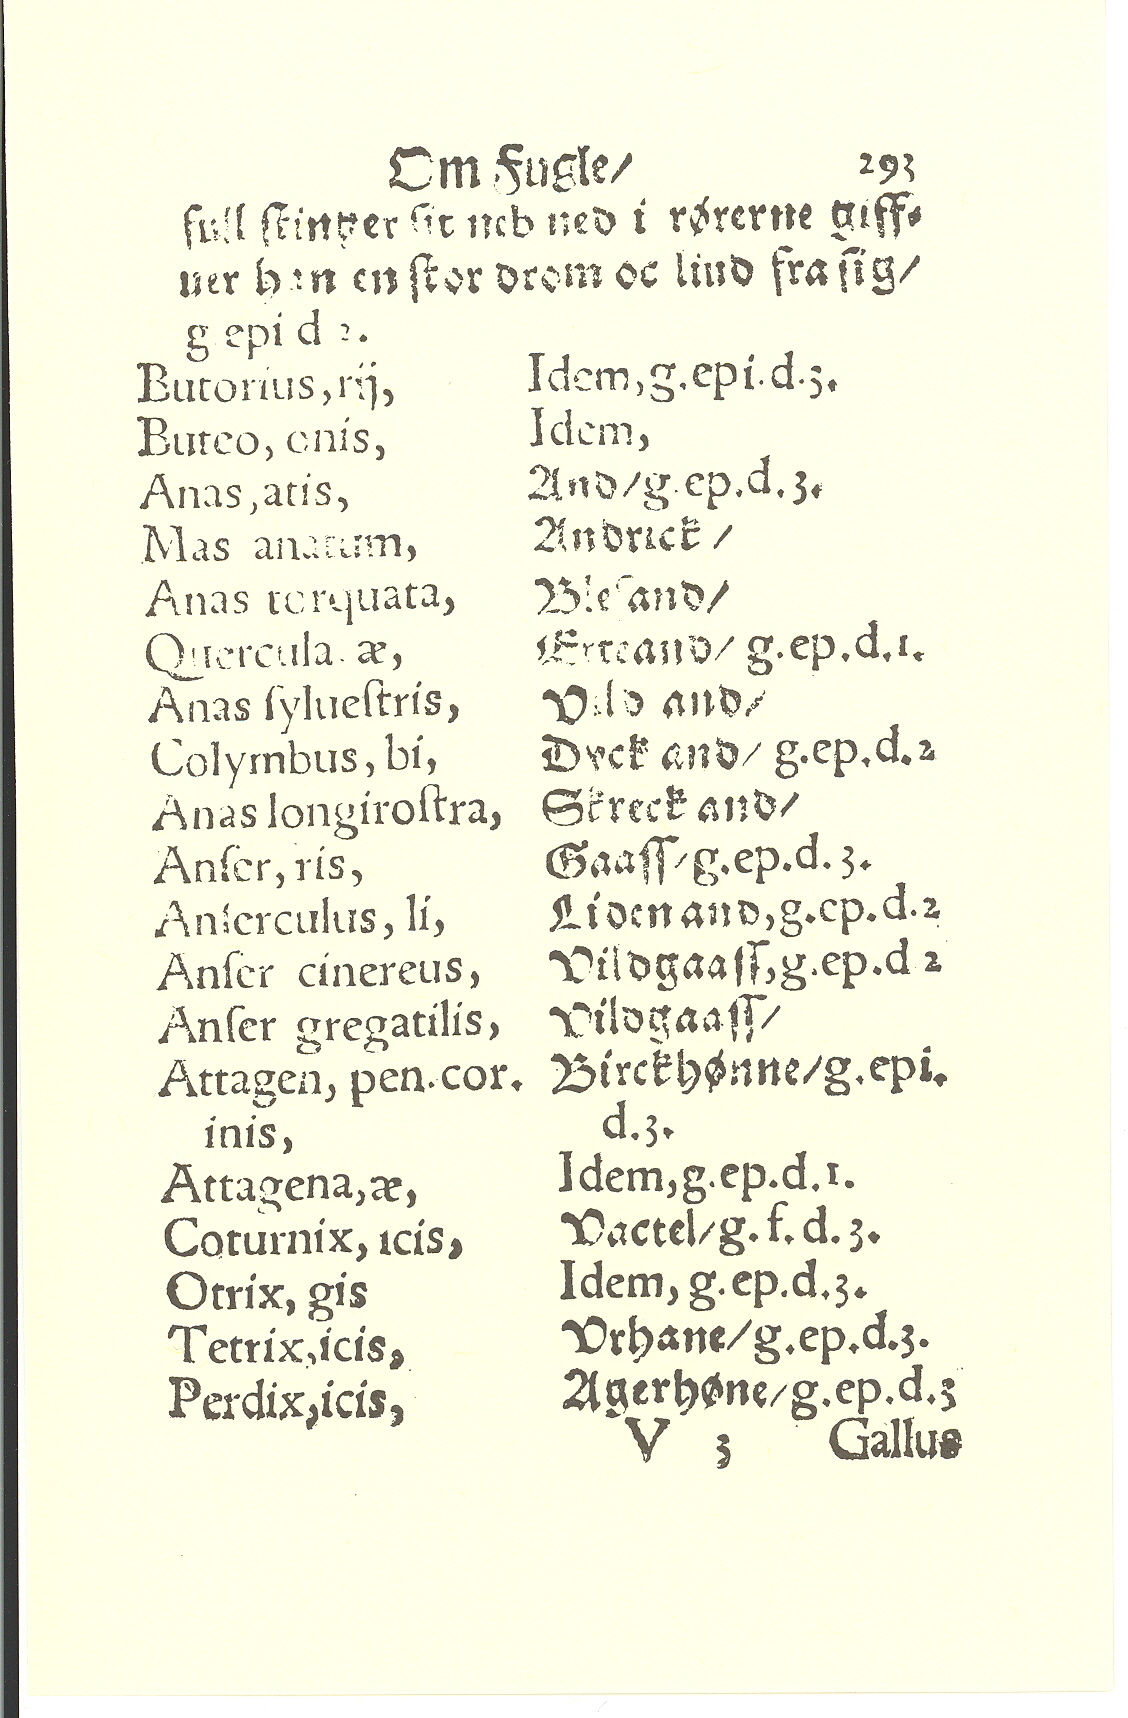 Om Fugle/ 293
full stinger sit neb ned i rørerne giff-
uer han en stor drom oc liud fra sig/
g epi d 2.
Butorius, rij, Idem, g. epi. d. 3.
Buteo, onis, Idem,
Anas, atis, And/ g. ep. d. 3.
Mas anatum, Andrick /
Anas torquata, Blesand/
Quercula. æ, Erteand/ g. ep. d. 1.
Anas syluestris, Vild and/
Colymbus, bi, Dyck and/ g. ep. d. 2
Anas longirostra, Skreck and/
Anser, ris, Gaass/ g. ep. d. 3.
Anserculus, li, Liden and, g. ep. d. 2
Anser cinereus, Vildgaass, g. ep. d 2
Anser gregatilis, Vildgaass/
Attagen, pen. cor. Birckhønne/ g. epi.
inis, d. 3.
Attagena, æ, Idem, g. ep. d. 1.
Coturnix, icis, Vactel/ g. f. d. 3.
Otrix, gis Idem, g. ep. d. 3.
Tetrix, icis, Vrhane/ g. ep. d. 3.
Perdix, icis, Agerhøne/ g. ep. d. 3
V 3 Gallus